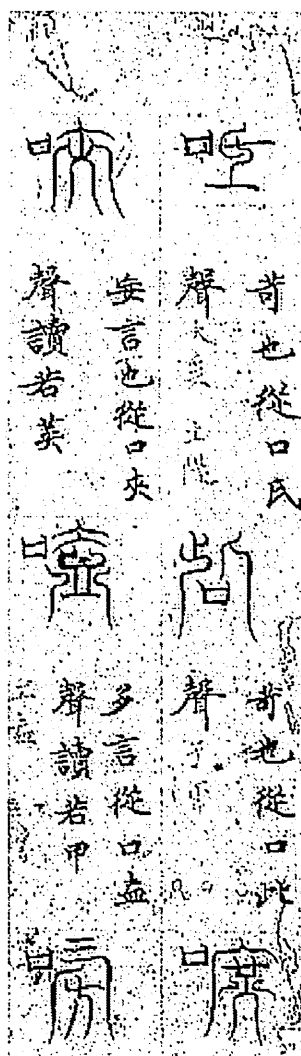 呧
苛也從口氏
聲
呰
苛也從口此
聲
嗻
唊
妄言也從口夾
聲讀若莢
嗑
多言從口盍
聲讀若甲
嗙